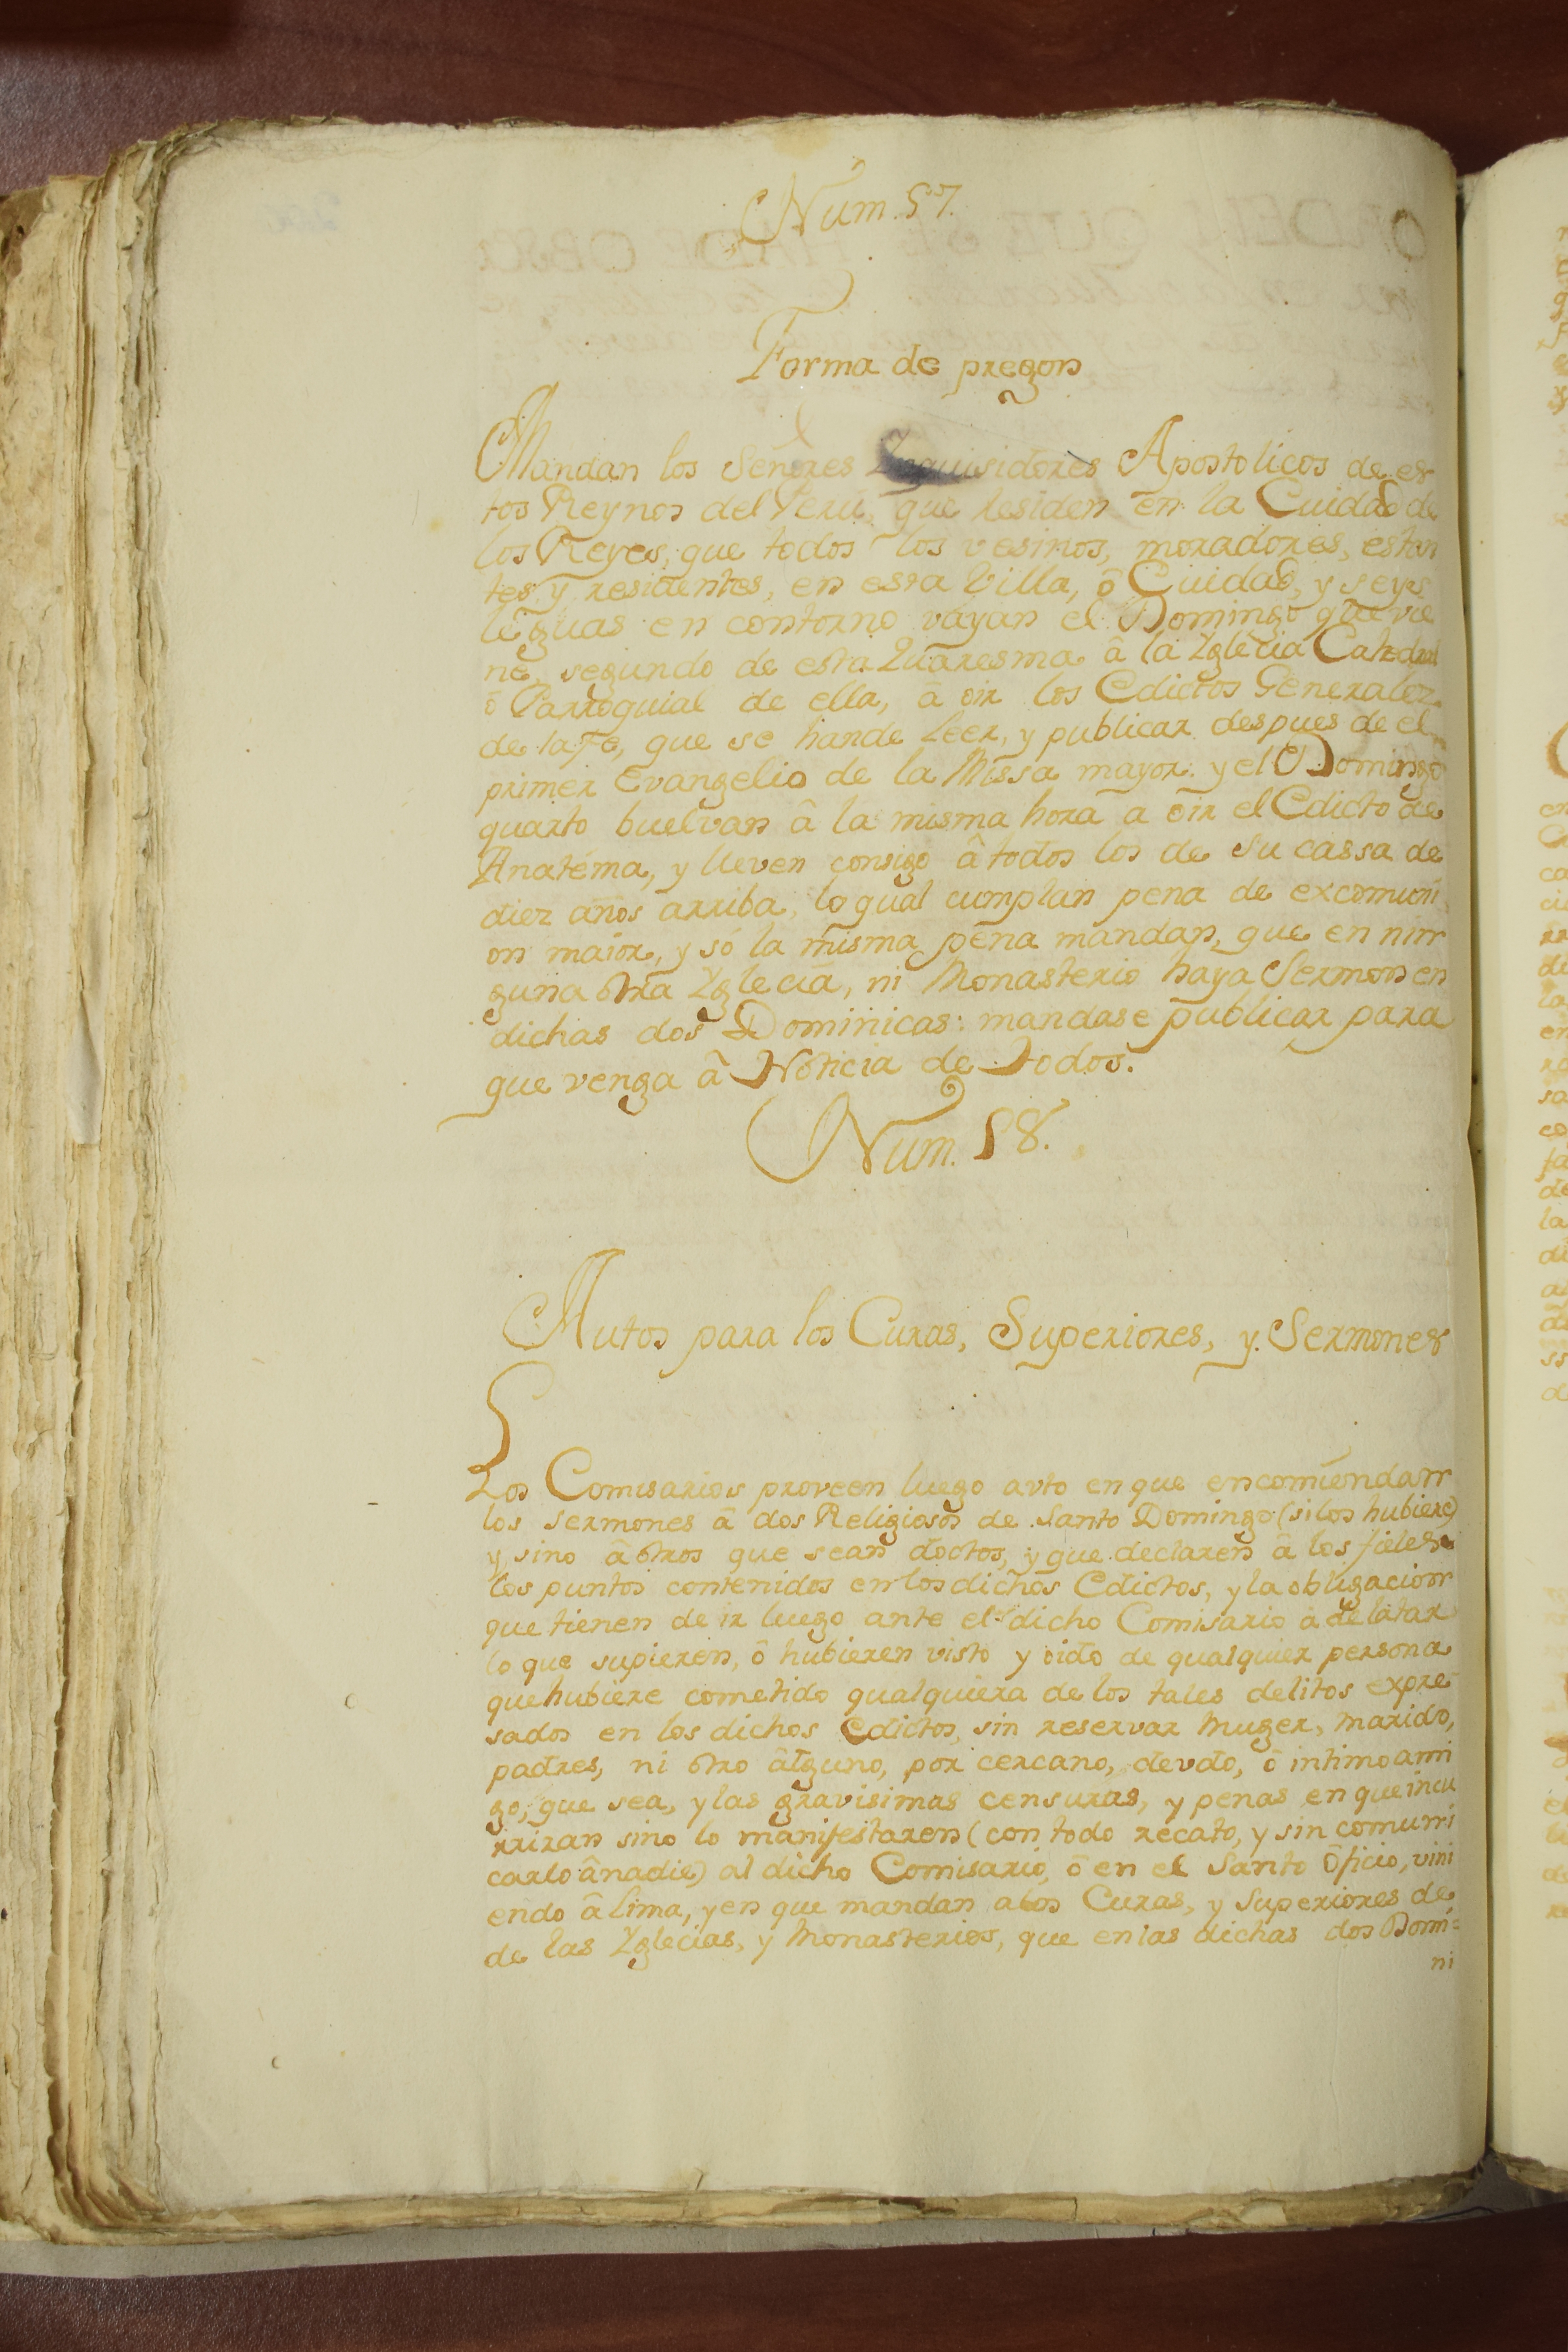 Num. 57.
Forma de pregon
Mandan los Señores Inquisidores Apostolicos de es-
tos Reynos del Peru, que residen en la Cuidad de
los Reyes, que todos los vesinos, moradores, estan
tes y residentes, en esta Villa, ô Cuidad, y seys
leguas en contorno vayan el Domingo que vie
ne, segundo de esta Quaresma â la Yglecia Cathedral
ô Parroquial de ella, â oir los Edictos Generales
de la Fe, que se hande Leer, y publicar despues de el
primer Evangelio de la Missa mayor. y el Domingo
quarto buelvan â la misma hora a oir el Edicto de
Anatéma, y lleven consigo â todos los de su cassa de
diez años arriba, lo qual cumplan pena de excomuni
on maior, y só la misma pena mandan, que en nin
guna otra Yglecia, ni Monasterio haya Sermon en
dichas dos Dominicas: mandase publicar para
que venga â Noticia de todos.
Num. 58.
Autos para los Curas, Superiores, y Sermones
Los Comisarios proveen luego avto en que encomiendan
los sermones â dos Religiosos de Santo Domingo (si los hubiere)
y, sino â otros que sean doctos, y que declaren â los fieles
los puntos contenidos en los dichos Edictos, y la obligacion
que tienen de ir luego ante el dicho Comisario a delatar
lo que supieren, ô hubieren visto y oido de qualquier persona
que hubiere cometido qualquiera de los tales delitos expre
sados en los dichos Edictos, sin reservar Muger, Marido,
padres, ni otro âlguno, por cercano, devdo, ô intimo ami
go, que sea, y las gravisimas censuras, y penas en que incu
rriran sino lo manifestaren (con todo recato, y sin comuni
carlo ânadie) al dicho Comisario, ô en el Santo Oficio, vini
endo â Lima, y en que mandan alos Curas, y Superiores de
de las Yglecias, y Monasterios, que en las dichas dos Domi=
ni